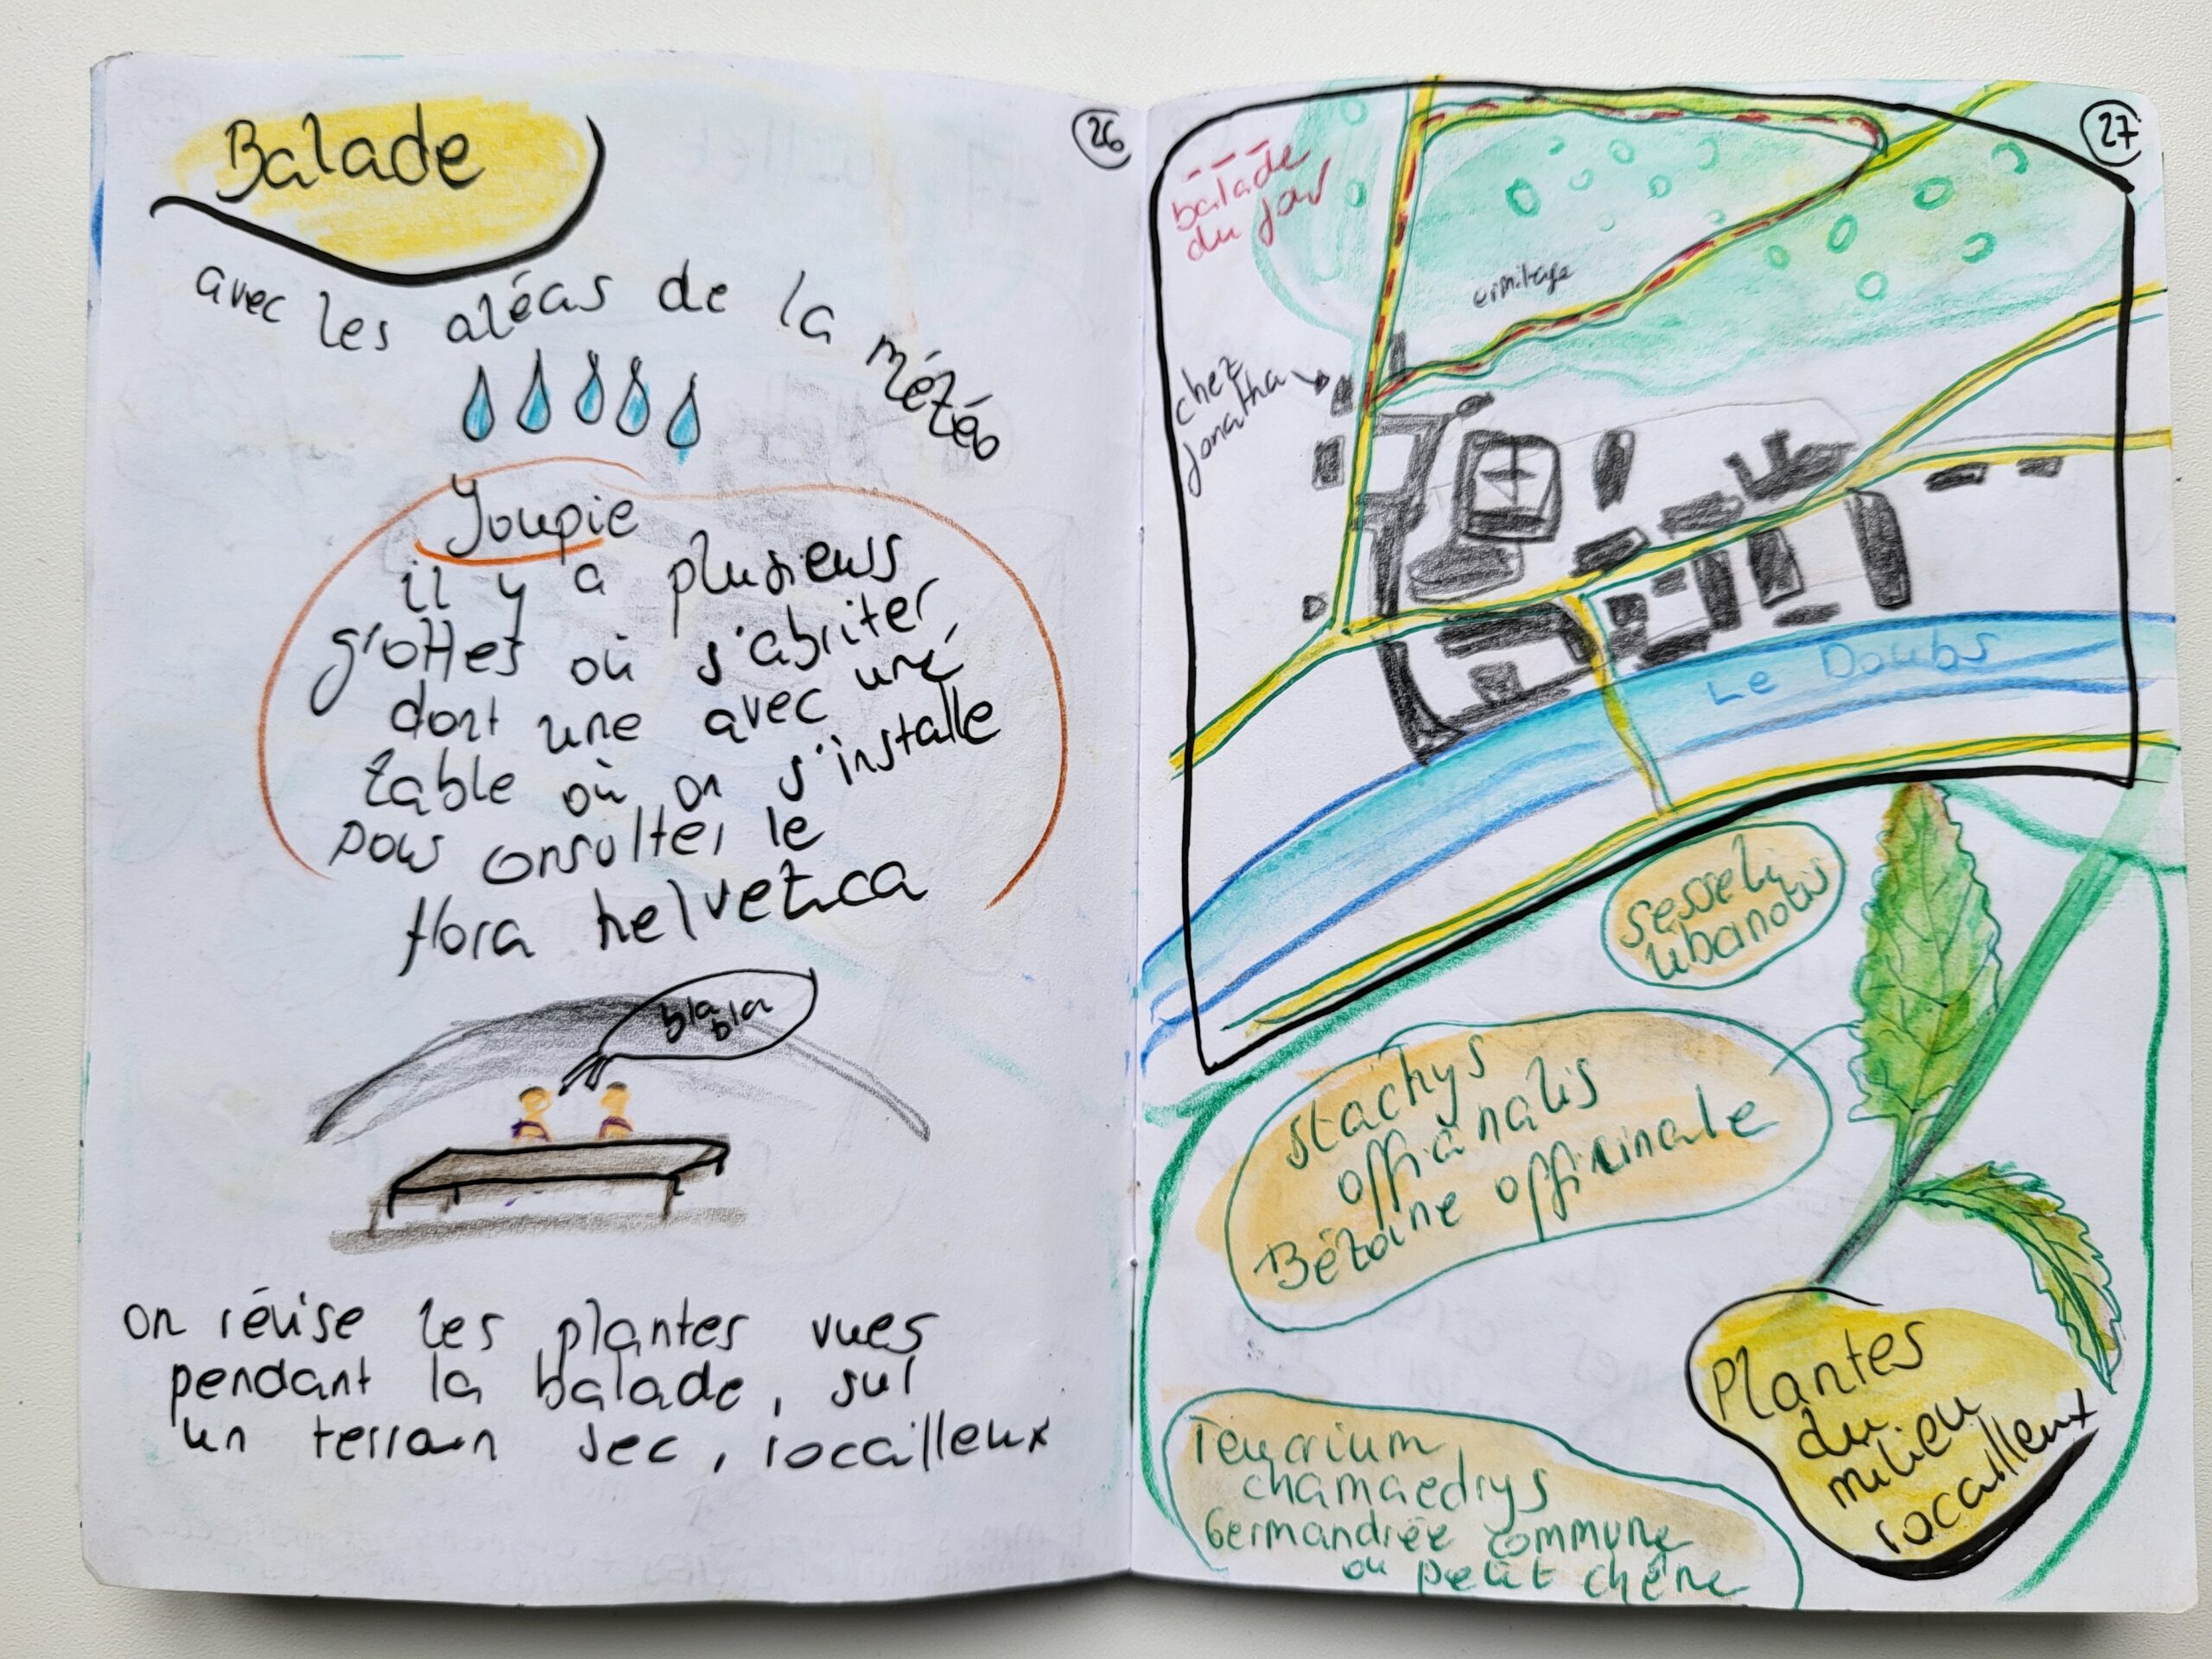 Balade
26
avec les aléas de la météo
Youpie
il y a plusieurs
grottes où s'abriter
dont une avec une
table où on s'installe
pour consulter le
flora helvetica
bla
bla
on révise les plantes vues
pendant la balade, sur
un terrain sec, rocailleux
27
balade
du jour
ermitage
chez
Jonatha
Le Doubs
Sesseli
libanotis
Stachys
officinalis
Bétoine officinale
Teucrium
chamaedrys
Germandrée commune
ou petit chêne
Plantes
du
milieu
rocailleux